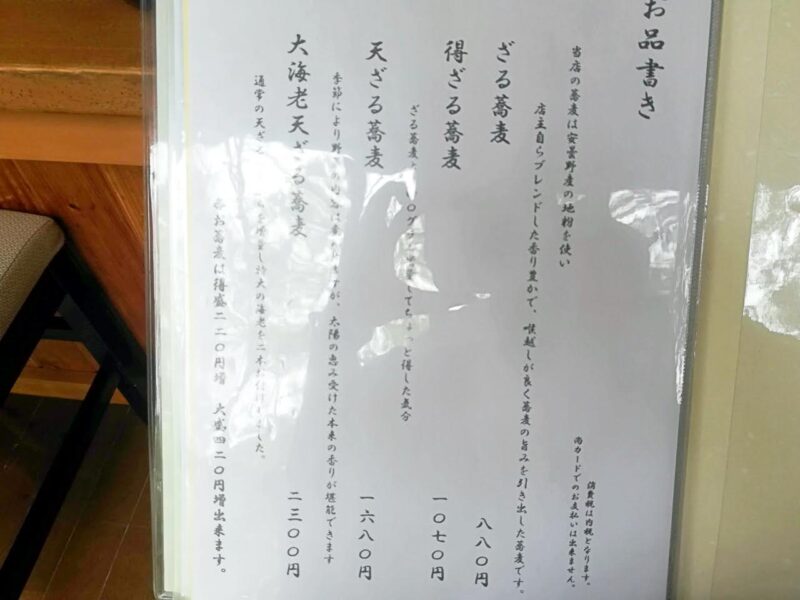 お品書き
消費税は内税となります。
尚カードでのお支払いは出来ません。
当店の蕎麦は安曇野産の地粉を使い
店主自らブレンドした香り豊かで、喉越しが良く蕎麦の旨みを引き出した蕎麦です。
ざる蕎麦 八八〇円
得ざる蕎麦 一〇七〇円
ざる蕎麦 〇グラム増量してちょっと得した気分
天ざる蕎麦 一六八〇円
季節により野菜の内容は変わりますが、太陽の恵み受けた本来の香りが堪能できます
大海老天ざる蕎麦 二三〇〇円
通常の天ざる を増量し特大の海老を二本お付けしました。
お蕎麦は得盛二二〇円増 大盛四二〇円増出来ます。